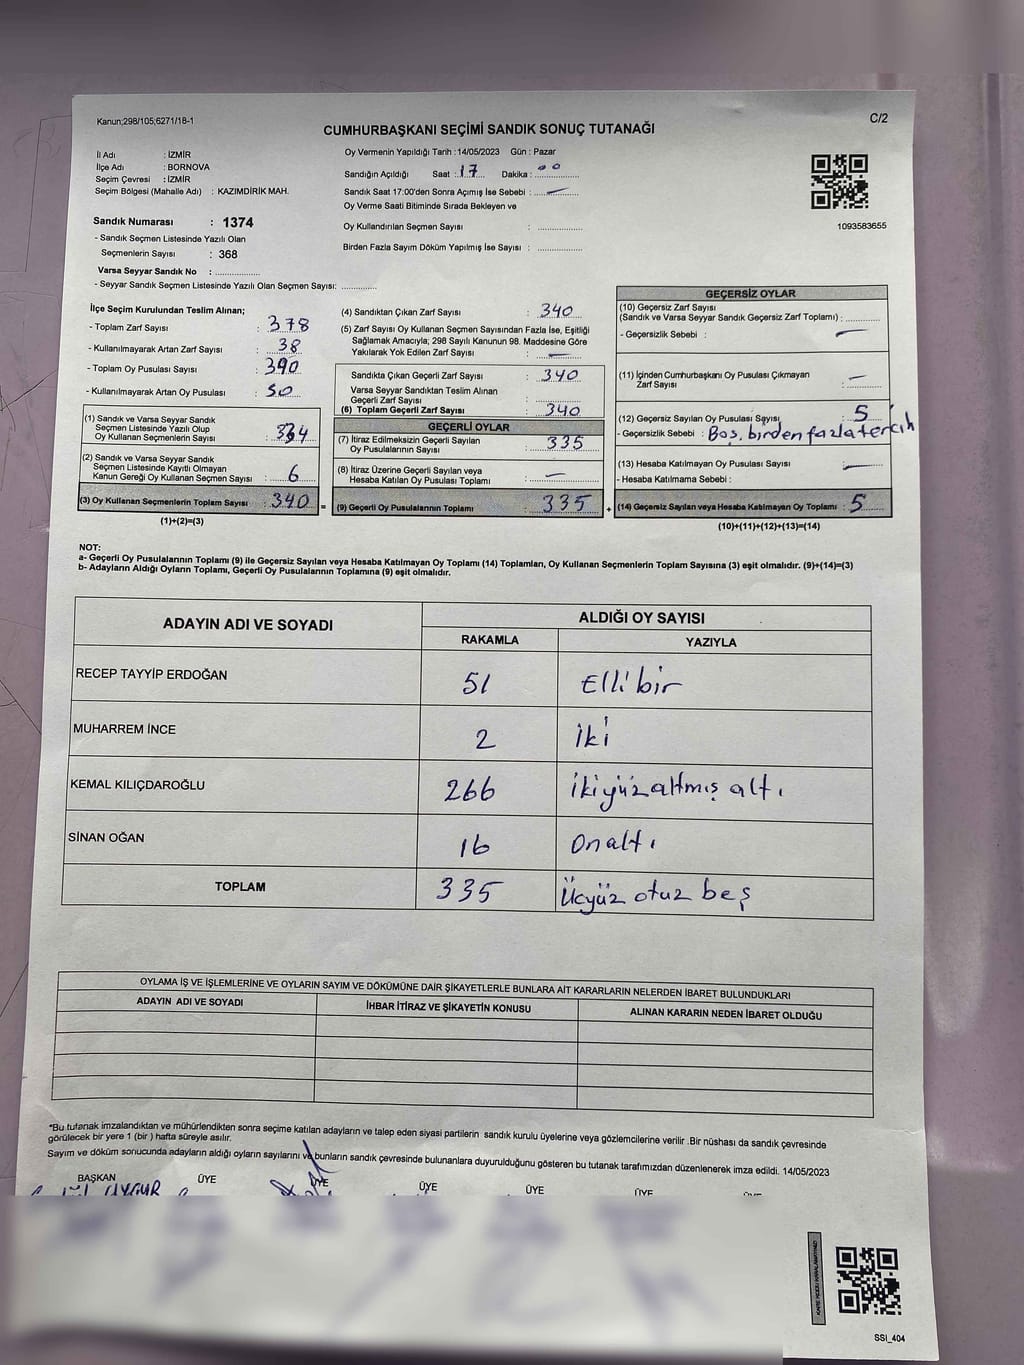 Kanun;298/105;6271/18-1
C/2
CUMHURBAŞKANI SEÇİMİ SANDIK SONUÇ TUTANAĞI
İl Adı : İZMİR
İlçe Adı : BORNOVA
Seçim Çevresi : İZMİR
Seçim Bölgesi (Mahalle Adı) : KAZIMDİRİK MAH.
Oy Vermenin Yapıldığı Tarih :14/05/2023 Gün : Pazar
Sandığın Açıldığı Saat : 17 Dakika : 00
Sandık Saat 17:00'den Sonra Açımış İse Sebebi : —
Oy Verme Saati Bitiminde Sırada Bekleyen ve
Oy Kullandırılan Seçmen Sayısı :
Birden Fazla Sayım Döküm Yapılmış İse Sayısı :
1093583655
Sandık Numarası : 1374
- Sandık Seçmen Listesinde Yazılı Olan
Seçmenlerin Sayısı : 368
Varsa Seyyar Sandık No :
- Seyyar Sandık Seçmen Listesinde Yazılı Olan Seçmen Sayısı:
İlçe Seçim Kurulundan Teslim Alınan;
- Toplam Zarf Sayısı : 378
- Kullanılmayarak Artan Zarf Sayısı : 38
- Toplam Oy Pusulası Sayısı : 390
- Kullanılmayarak Artan Oy Pusulası : 50
(1) Sandık ve Varsa Seyyar Sandık
Seçmen Listesinde Yazılı Olup
Oy Kullanan Seçmenlerin Sayısı : 334
(2) Sandık ve Varsa Seyyar Sandık
Seçmen Listesinde Kayıtlı Olmayan
Kanun Gereği Oy Kullanan Seçmen Sayısı : 6
(3) Oy Kullanan Seçmenlerin Toplam Sayısı : 340 =
(1)+(2)=(3)
(4) Sandıktan Çıkan Zarf Sayısı : 340
(5) Zarf Sayısı Oy Kullanan Seçmen Sayısından Fazla İse, Eşitliği
Sağlamak Amacıyla; 298 Sayılı Kanunun 98. Maddesine Göre
Yakılarak Yok Edilen Zarf Sayısı : —
Sandıkta Çıkan Geçerli Zarf Sayısı : 340
Varsa Seyyar Sandıktan Teslim Alınan
Geçerli Zarf Sayısı :
(6) Toplam Geçerli Zarf Sayısı : 340
GEÇERLİ OYLAR
(7) İtiraz Edilmeksizin Geçerli Sayılan
Oy Pusulalarının Sayısı : 335
(8) İtiraz Üzerine Geçerli Sayılan veya
Hesaba Katılan Oy Pusulası Toplamı : —
(9) Geçerli Oy Pusulalarının Toplamı : 335 +
GEÇERSİZ OYLAR
(10) Geçersiz Zarf Sayısı
(Sandık ve Varsa Seyyar Sandık Geçersiz Zarf Toplamı) :
- Geçersizlik Sebebi : —
(11) İçinden Cumhurbaşkanı Oy Pusulası Çıkmayan
Zarf Sayısı : —
(12) Geçersiz Sayılan Oy Pusulası Sayısı : 5
- Geçersizlik Sebebi : Boş, birden fazla tercih
(13) Hesaba Katılmayan Oy Pusulası Sayısı : —
- Hesaba Katılmama Sebebi :
(14) Geçersiz Sayılan veya Hesaba Katılmayan Oy Toplamı : 5
(10)+(11)+(12)+(13)=(14)
NOT:
a- Geçerli Oy Pusulalarının Toplamı (9) ile Geçersiz Sayılan veya Hesaba Katılmayan Oy Toplamı (14) Toplamları, Oy Kullanan Seçmenlerin Toplam Sayısına (3) eşit olmalıdır. (9)+(14)=(3)
b- Adayların Aldığı Oyların Toplamı, Geçerli Oy Pusulalarının Toplamına (9) eşit olmalıdır.
ADAYIN ADI VE SOYADI
ALDIĞI OY SAYISI
RAKAMLA YAZIYLA
RECEP TAYYİP ERDOĞAN 51 Elli bir
MUHARREM İNCE 2 İki
KEMAL KILIÇDAROĞLU 266 İkiyüzaltmış altı
SİNAN OĞAN 16 Onaltı
TOPLAM 335 Üçyüz otuz beş
OYLAMA İŞ VE İŞLEMLERİNE VE OYLARIN SAYIM VE DÖKÜMÜNE DAİR ŞİKAYETLERLE BUNLARA AİT KARARLARIN NELERDEN İBARET BULUNDUKLARI
ADAYIN ADI VE SOYADI İHBAR İTİRAZ VE ŞİKAYETİN KONUSU ALINAN KARARIN NEDEN İBARET OLDUĞU
*Bu tutanak imzalandıktan ve mühürlendikten sonra seçime katılan adayların ve talep eden siyasi partilerin sandık kurulu üyelerine veya gözlemcilerine verilir .Bir nüshası da sandık çevresinde
görülecek bir yere 1 (bir ) hafta süreyle asılır.
Sayım ve döküm sonucunda adayların aldığı oyların sayılarını ve bunların sandık çevresinde bulunanlara duyurulduğunu gösteren bu tutanak tarafımızdan düzenlenerek imza edildi. 14/05/2023
BAŞKAN ÜYE ÜYE ÜYE ÜYE ÜYE
SSI_404